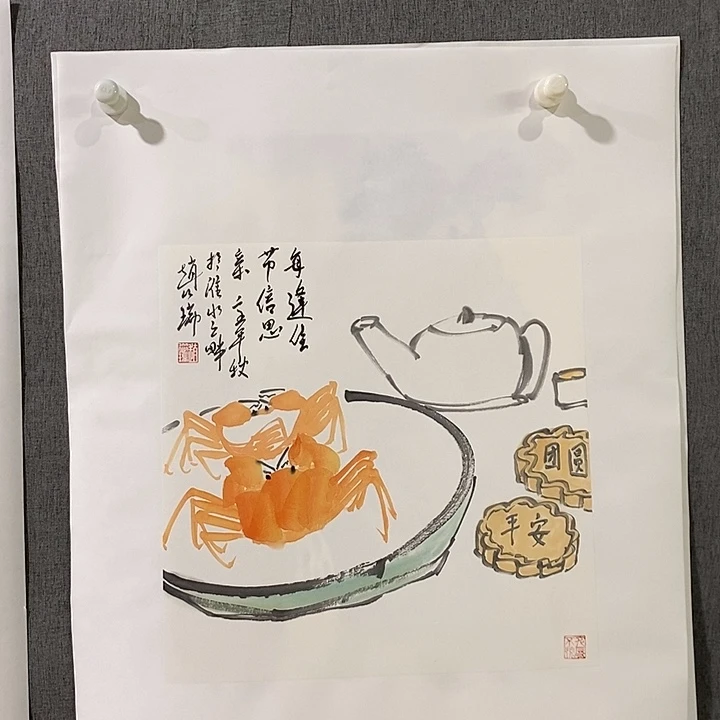 每逢佳
节倍思
亲 年秋
于淮水之畔
赵 瑞
团圆
平安